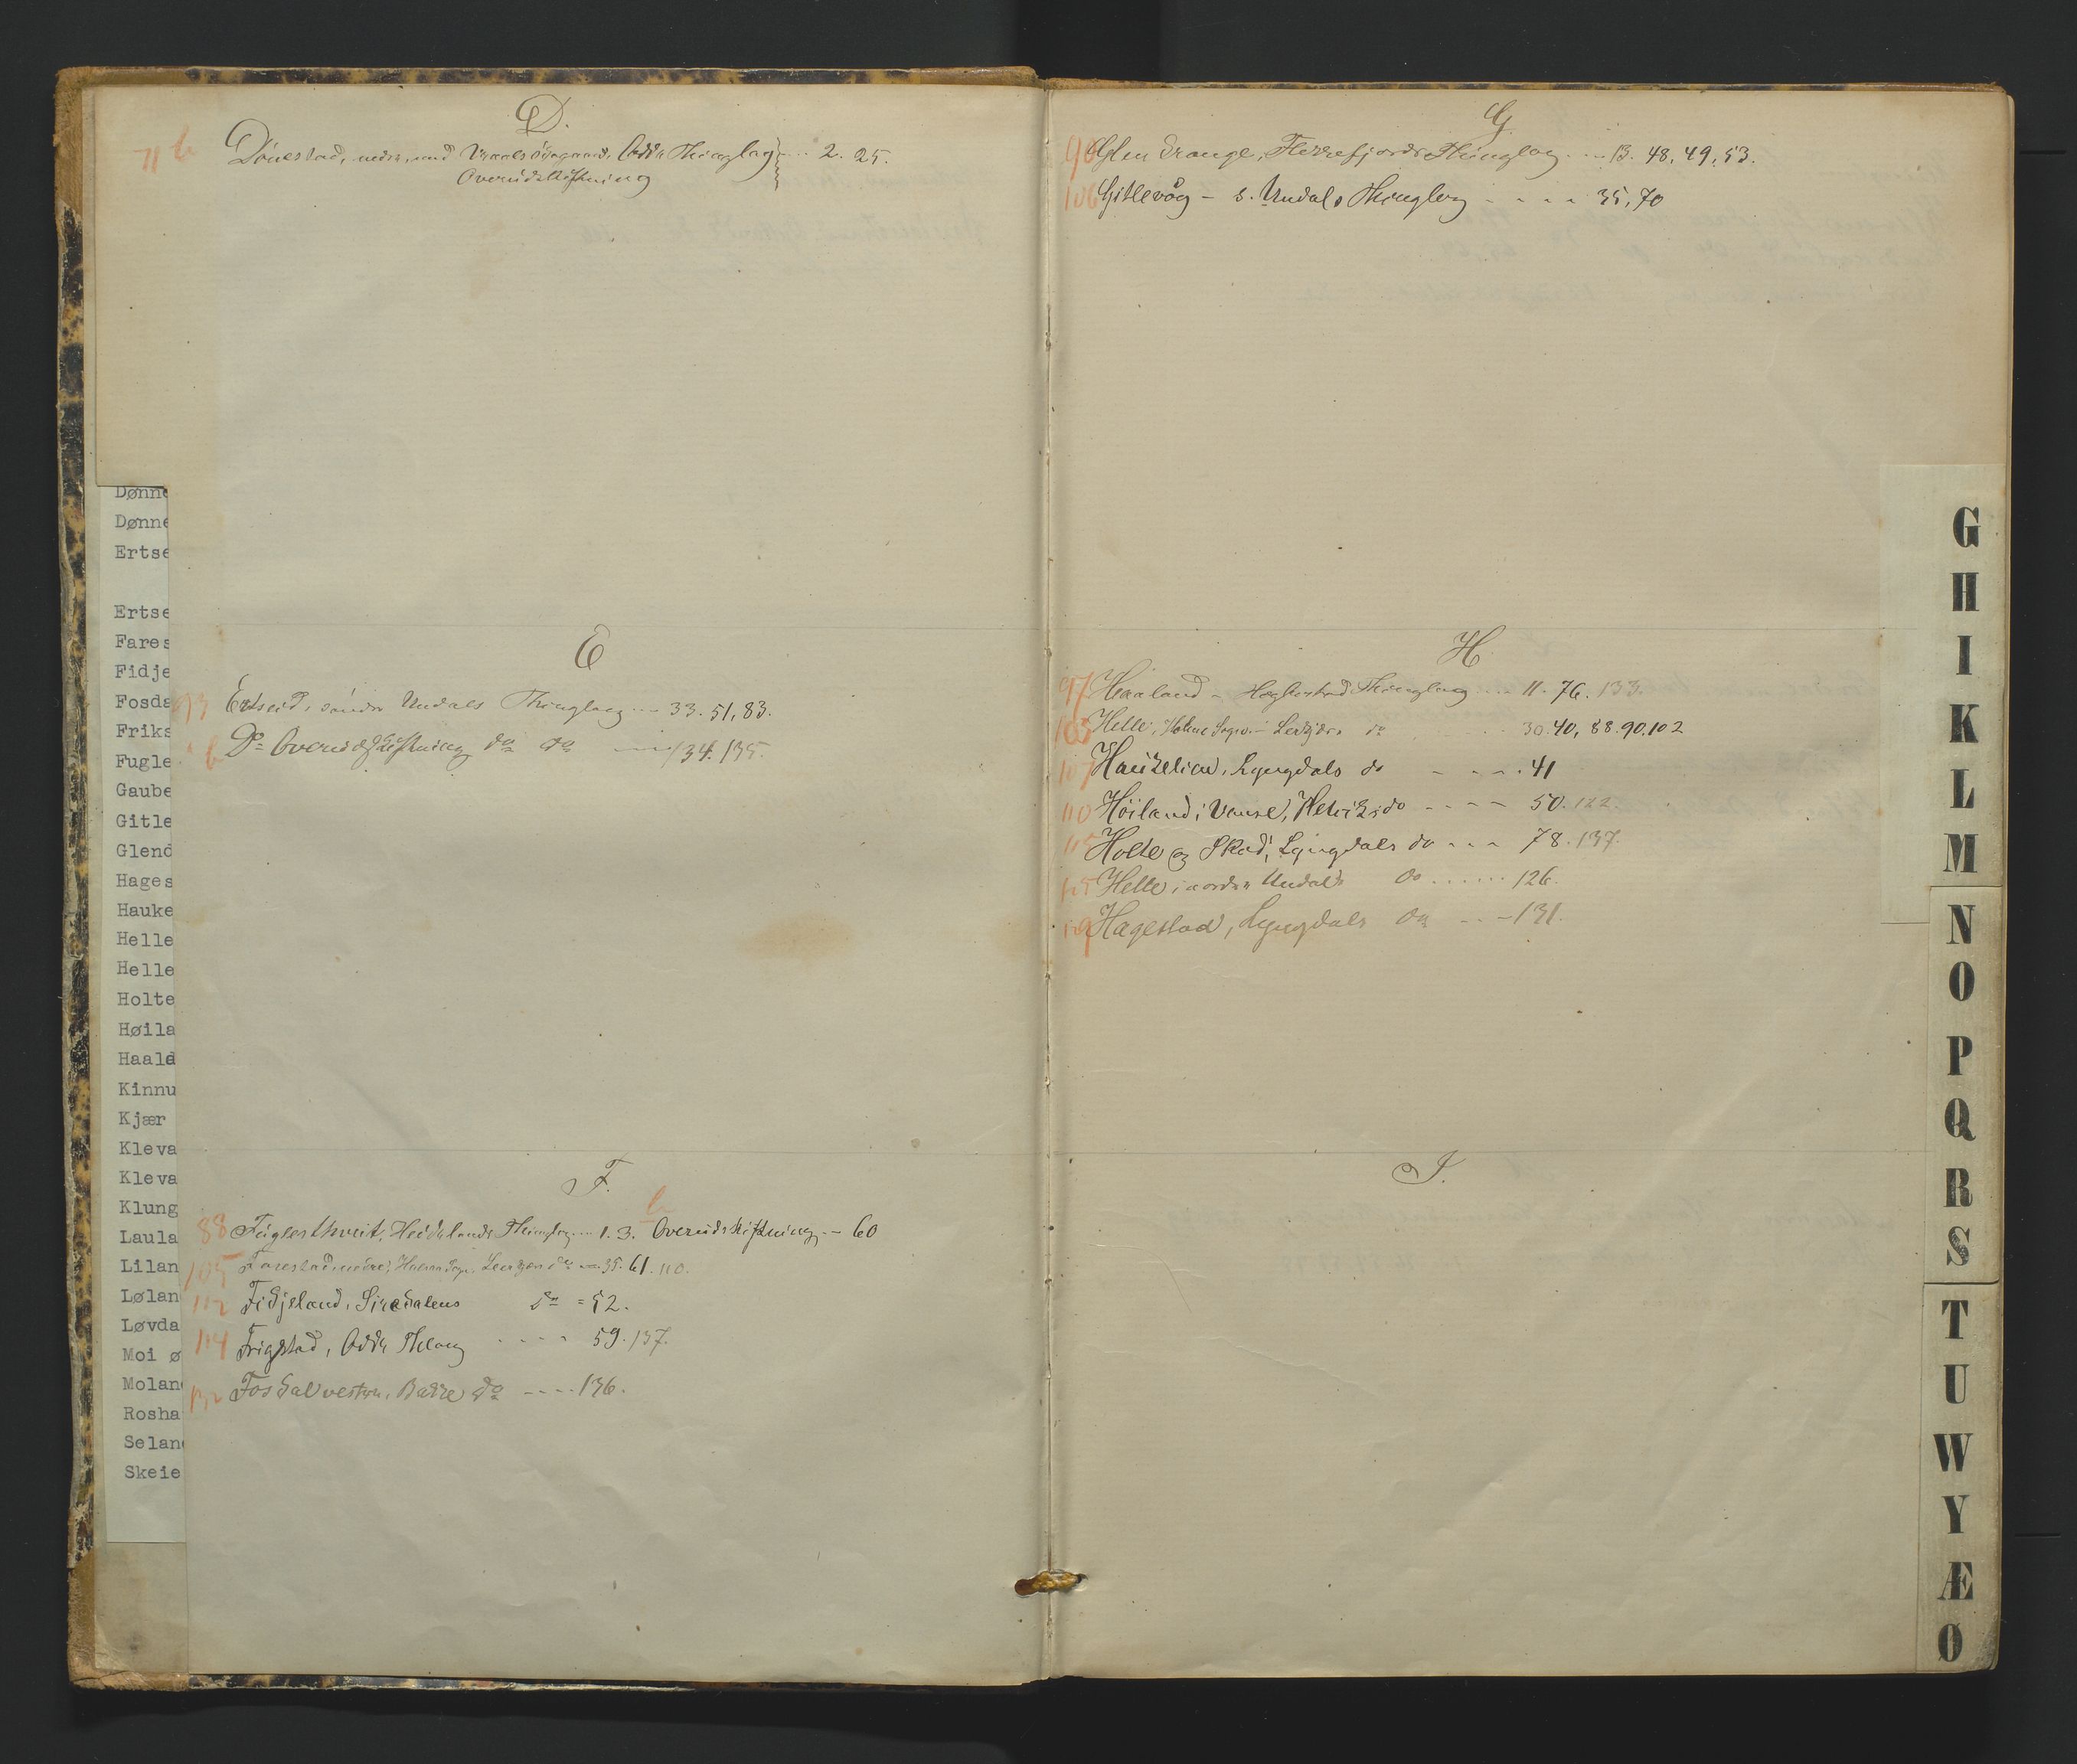 D.
71 b Dönestad, nedre, med Vraals ödegaard, Odds Thinglag 2. 25.
Overudskiftning
E
93 Ertseid, söndre Undals Thinglag 33. 51, 83.
b Do Overudskiftning do do 134. 135.
F.
b
88 Fuglesthveit, Heidslands Thinglag 1. 3. Overudskiftning 60
105 Farestad, nedre, Halsaa Sogn. do 35. 61. 110.
112 Fidjeland, Siredalens do 52.
114 Frigstad, Odds Thlag 59. 137.
132 Fosdal vestre, Bakke do 136.
Dønne
Dønne
Ertse
Ertse
Fares
Fidje
Fosda
Friks
Fugle
Gaube
Gitle
Glend
Hages
Hauke
Helle
Helle
Holte
Høila
Haala
Kinnu
Kjær
Kleva
Kleva
Klung
Laula
Lilan
Lølan
Løvda
Moi ø
Molan
Rosha
Selan
Skeie
G
96 Glendrange, Fladefjords Thinglag 13. 48, 49, 53.
106 Gitlevåg - s. Undals Thinglag 35, 70
H
97 Haaland - Hægbostad Thinglag 11. 76. 133.
103 Helle, Holme Sogn 30. 40, 88. 90. 102
107 Haukelien, Lyngdals do 41
110 Höiland i Vanse, do 50. 122.
115 Holte og Lyngdals do 78. 137.
125 Helle i nordre Undals do 126.
129 Hagestad, Lyngdals do 131.
I.
G
H
I
K
L
M
N
O
P
Q
R
S
T
U
W
Y
Æ
Ø